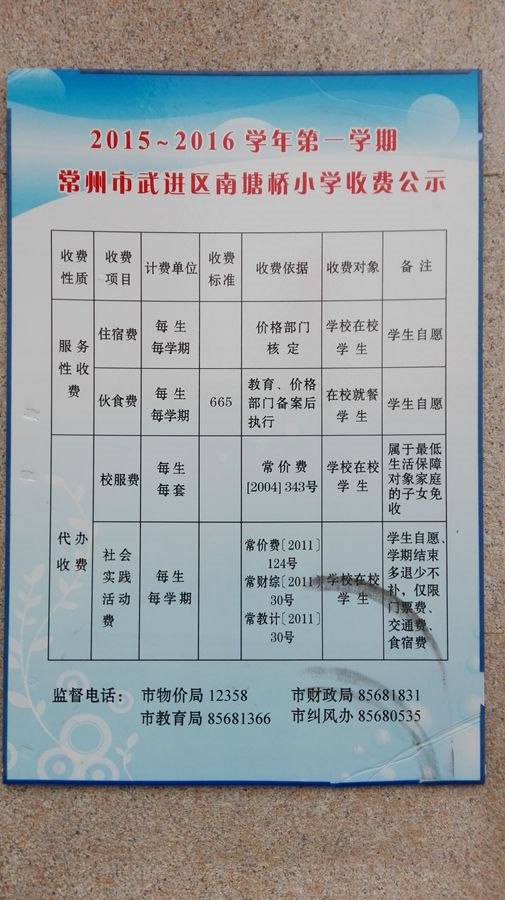 2015~2016 学年第一学期
常州市武进区南塘桥小学收费公示
收费性质 收费项目 计费单位 收费标准 收费依据 收费对象 备注
服务性收费 住宿费 每生每学期 价格部门核定 学校在校学生 学生自愿
伙食费 每生每学期 665 教育、价格部门备案后执行 在校就餐学生 学生自愿
代办收费 校服费 每生每套 常价费[2004]343号 学校在校学生 属于最低生活保障对象家庭的子女免收
社会实践活动费 每生每学期 常价费〔2011〕124号 常财综〔2011〕30号 常教计〔2011〕30号 学校在校学生 学生自愿、学期结束多退少不补，仅限门票费、交通费、食宿费
监督电话： 市物价局 12358 市财政局 85681831
市教育局 85681366 市纠风办 85680535